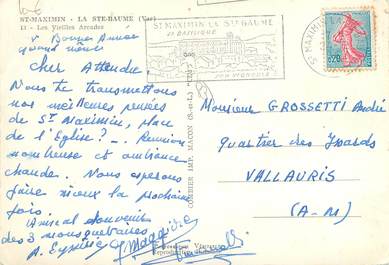 ST-MAXIMIN - LA STE-BAUME (Var)
11 - Les Vieilles Arcades
+ Bonne Année
quand même
Cher Attendu,
Nous te transmettons
nos meilleures pensées
de St Maximin, place
de l'Eglise? - Réunion
nombreuse et ambiance
chaude. Nous espérons
faire mieux la prochaine
fois.
Amical souvenir
des 3 mousquetaires
COMBIER IMP. MACON (S.-et-L.)
ST MAXIMIN LA STE BAUME
SA BASILIQUE
SON VIGNOBLE
ST MAXIMIN LA
0,20
Monsieur GROSSETTI André
Quartier des
VALLAURIS
(A-M)